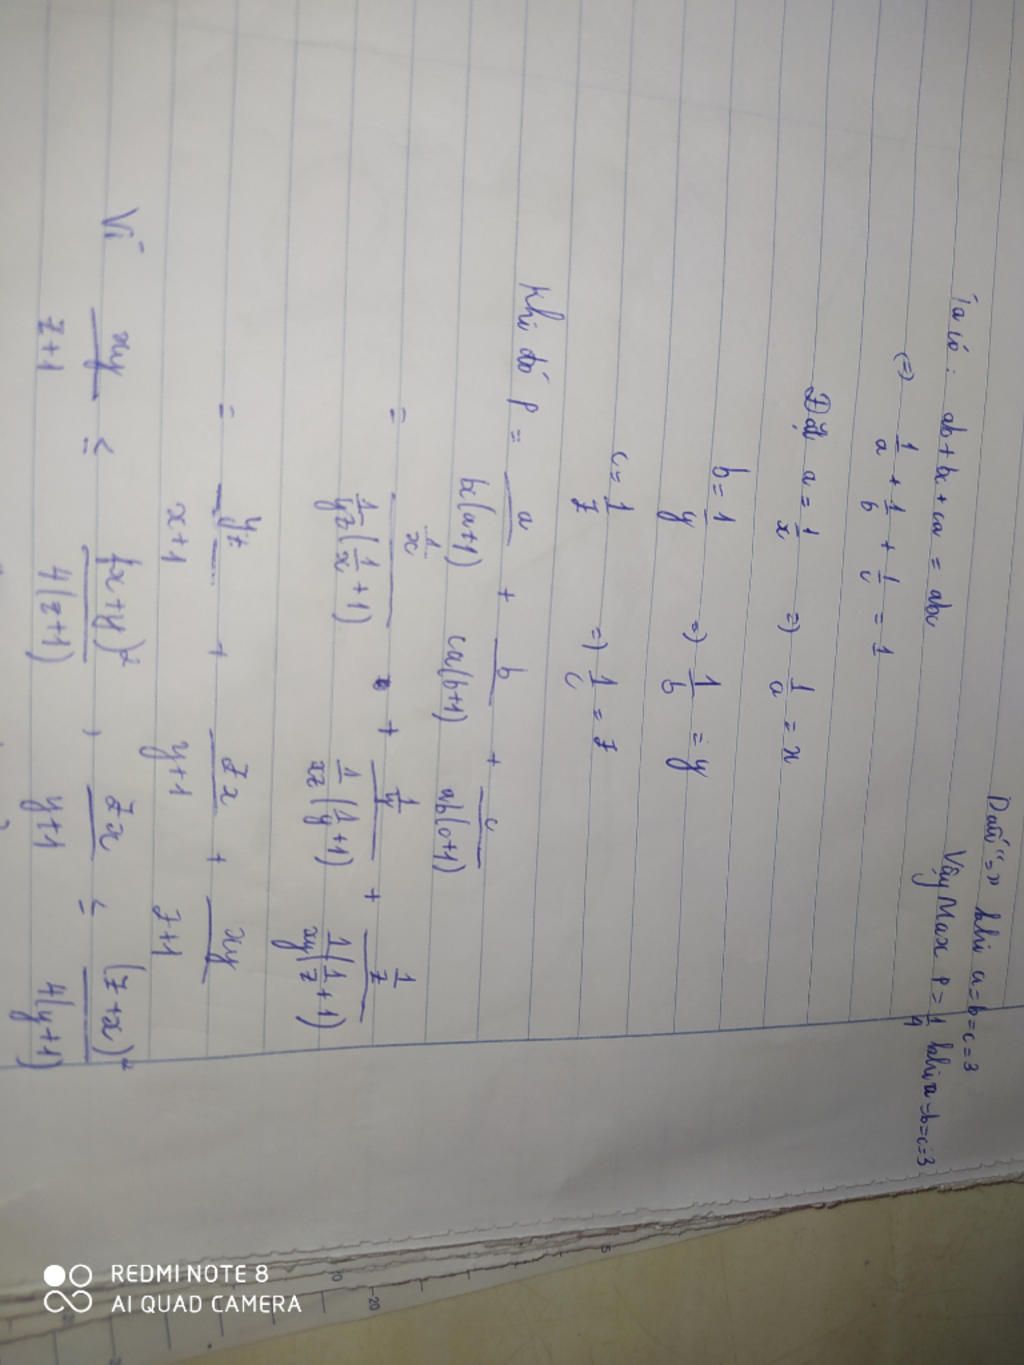 Dấu "=" khi a=b=c=3
Vậy Max P = 1/4 khi a=b=c=3
Ta có: ab+bc+ca = abc
(=) 1/a + 1/b + 1/c = 1
Đặt a = 1/x => 1/a = x
b = 1/y => 1/b = y
c = 1/z => 1/c = z
Khi đó P = a/(bc(a+1)) + b/(ca(b+1)) + c/(ab(c+1))
= (1/x)/(1/yz (1/x + 1)) + (1/y)/(1/xz (1/y + 1)) + (1/z)/(1/xy (1/z + 1))
= yz/(x+1) + zx/(y+1) + xy/(z+1)
Vì xy/(z+1) ≤ (x+y)²/(4(z+1)) , zx/(y+1) ≤ (z+x)²/(4(y+1))
REDMI NOTE 8
AI QUAD CAMERA